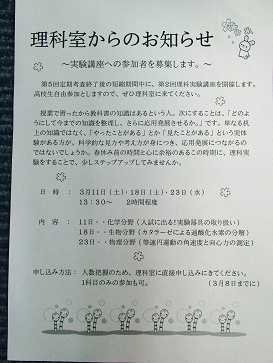 理科室からのお知らせ
～実験講座への参加者を募集します。～
第5回定期考査終了後の短縮期間中に、第2回理科実験講座を開催します。
高校生自由参加としますので、ぜひ理科室に来てください。
授業で習ったから教科書の知識はあるという人。次にすることは、「どのよ
うにして今までの知識を整理し、さらに応用発展させるか。」です。単なる机
上の知識ではなく、「やったことがある」とか「見たことがある」という実体
験がある方が、科学的な見方や考え方が身につき、応用発展につながるの
ではないでしょうか。春休み前の時間と心に余裕のあるこの時期に、理科実
験をすることで、少しステップアップしてみませんか。
日　時　：　3月11日(土)・18日(土)・23日(水)
13：30～　2時間程度
内　容　：　11日・・化学分野（入試に出る！実験器具の取り扱い）
18日・・生物分野（カタラーゼによる過酸化水素の分解）
23日・・物理分野（等速円運動の角速度と向心力の測定）
申し込み方法：人数把握のため、理科室に直接申し込みにきてください。
1科目のみの参加も可。　（3月8日までに）